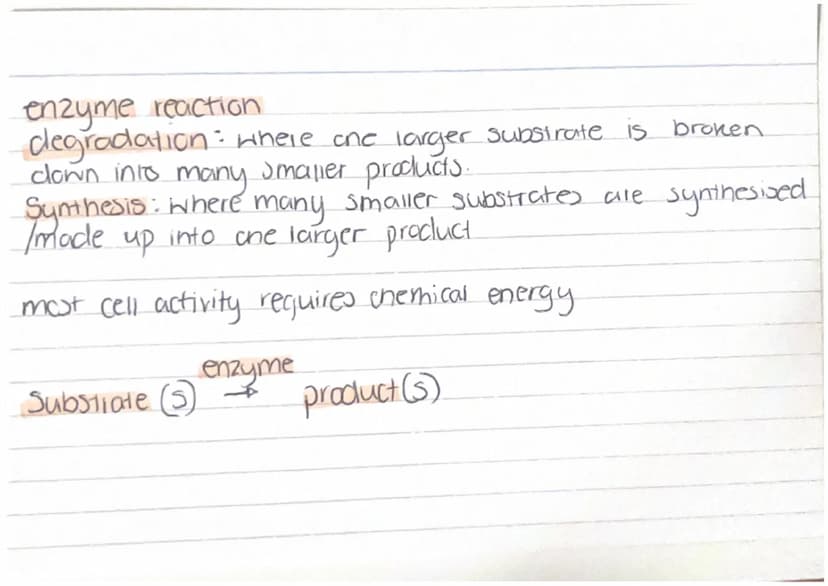 enzyme reaction
degradation: where one larger substrate is broken
down into many smaller products.
Synthesis: where many smaller substrates are synthesised
/made up into one larger product
most cell activity requires chemical energy
enzyme
Substrate (s) → product(s)